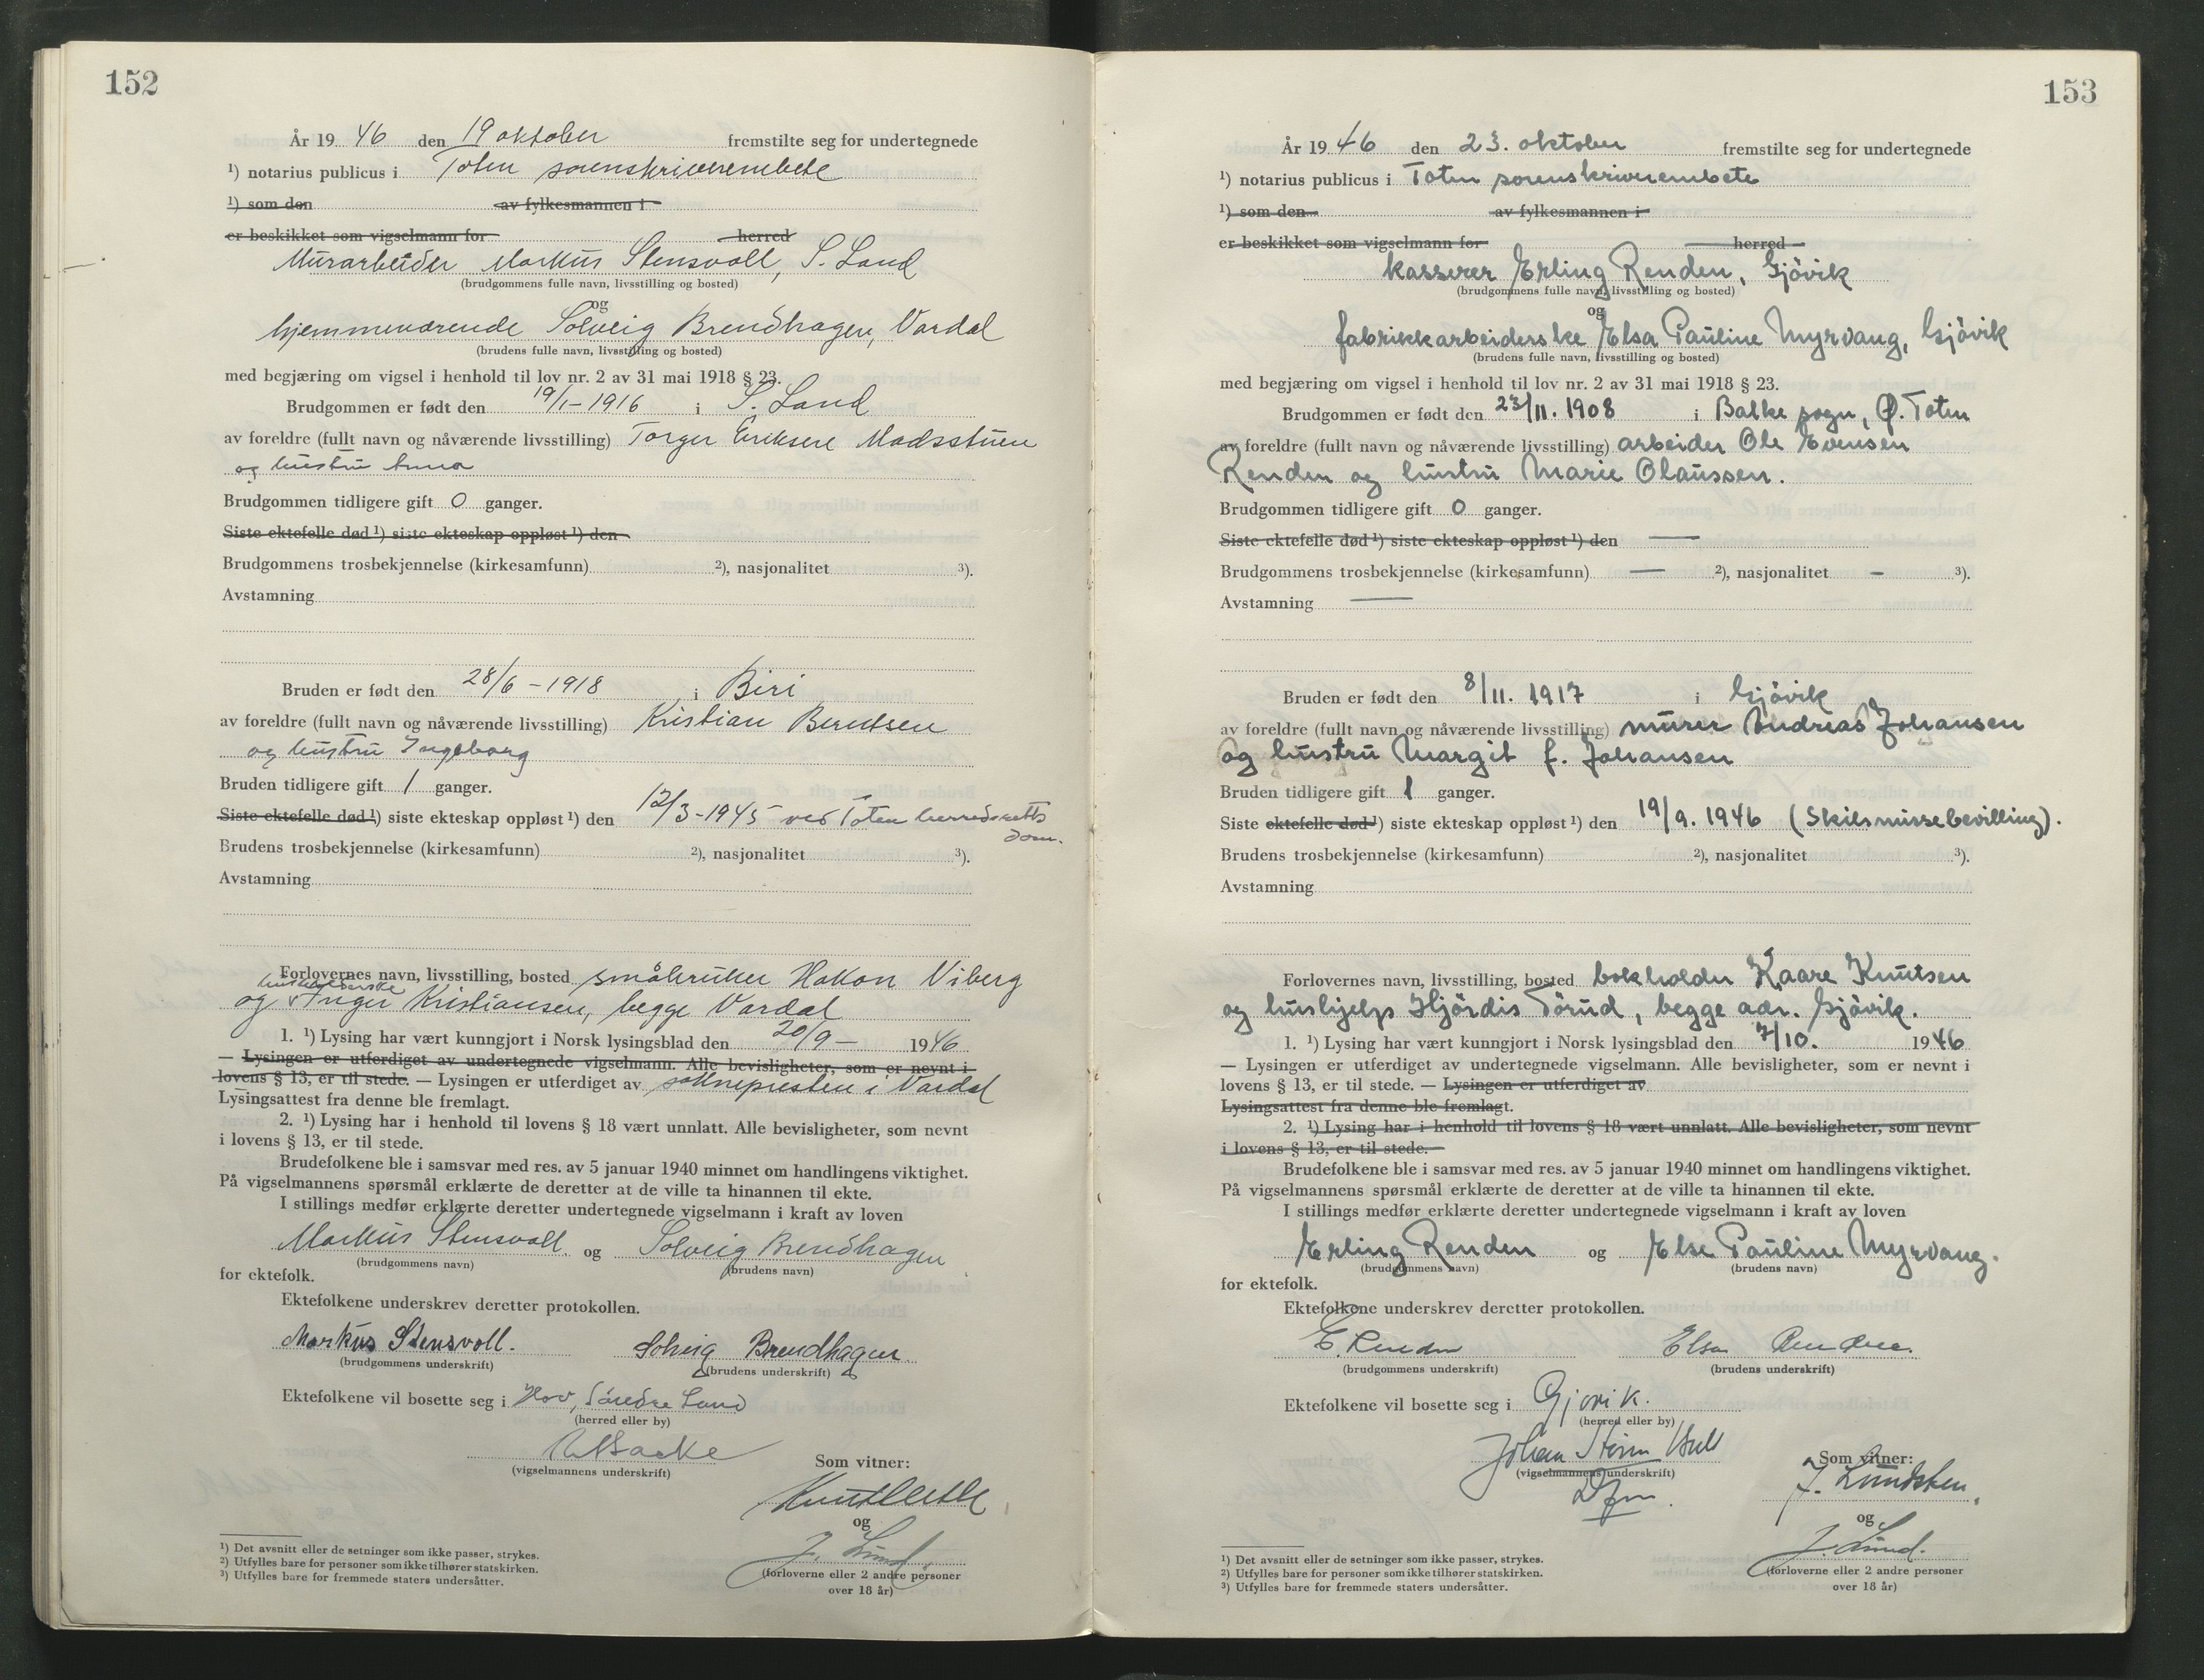 152
År 1946 den 19 oktober fremstilte seg for undertegnede
¹) notarius publicus i Toten sorenskriverembete
¹) som den av fylkesmannen i
er beskikket som vigselmann for herred
Murarbeider Markus Stensvoll, S. Land
(brudgommens fulle navn, livsstilling og bosted)
og
hjemmeværende Solveig Brendhagen, Vardal
(brudens fulle navn, livsstilling og bosted)
med begjæring om vigsel i henhold til lov nr. 2 av 31 mai 1918 § 23.
Brudgommen er født den 19/1-1916 i S. Land
av foreldre (fullt navn og nåværende livsstilling) Torger Eriksen Madsstuen
og hustru Anna
Brudgommen tidligere gift 0 ganger.
Siste ektefelle død ¹) siste ekteskap oppløst ¹) den
Brudgommens trosbekjennelse (kirkesamfunn) ²), nasjonalitet ³).
Avstamning
Bruden er født den 28/6-1918 i Biri
av foreldre (fullt navn og nåværende livsstilling) Kristian Berntsen
og hustru Ingeborg
Bruden tidligere gift 1 ganger.
Siste ektefelle død ¹) siste ekteskap oppløst ¹) den 12/3-1945 ved Toten herredsretts
dom.
Brudens trosbekjennelse (kirkesamfunn) ²), nasjonalitet ³).
Avstamning
Forlovernes navn, livsstilling, bosted småbruker Hakon Viberg
husholderske
og Inger Kristiansen, begge Vardal
1. ¹) Lysing har vært kunngjort i Norsk lysingsblad den 20/9- 1946
— Lysingen er utferdiget av undertegnede vigselmann. Alle bevisligheter, som er nevnt i
lovens § 13, er til stede. — Lysingen er utferdiget av soknepresten i Vardal
Lysingsattest fra denne ble fremlagt.
2. ¹) Lysing har i henhold til lovens § 18 vært unnlatt. Alle bevisligheter, som nevnt
i lovens § 13, er til stede.
Brudefolkene ble i samsvar med res. av 5 januar 1940 minnet om handlingens viktighet.
På vigselmannens spørsmål erklærte de deretter at de ville ta hinannen til ekte.
I stillings medfør erklærte deretter undertegnede vigselmann i kraft av loven
Markus Stensvoll og Solveig Brendhagen
(brudgommens navn) (brudens navn)
for ektefolk.
Ektefolkene underskrev deretter protokollen.
Markus Stensvoll. Solveig Brendhagen
(brudgommens underskrift) (brudens underskrift)
Ektefolkene vil bosette seg i Hov, Søndre Land
(herred eller by)
(vigselmannens underskrift)
Som vitner:
og
J. Lund.
(forloverne eller 2 andre personer
over 18 år)
¹) Det avsnitt eller de setninger som ikke passer, strykes.
²) Utfylles bare for personer som ikke tilhører statskirken.
³) Utfylles bare for fremmede staters undersåtter.
153
År 1946 den 23. oktober fremstilte seg for undertegnede
¹) notarius publicus i Toten sorenskriverembete
¹) som den av fylkesmannen i
er beskikket som vigselmann for herred
kasserer Erling Renden, Gjövik
(brudgommens fulle navn, livsstilling og bosted)
og
fabrikkarbeiderske Elsa Pauline Myrvang, Gjövik
(brudens fulle navn, livsstilling og bosted)
med begjæring om vigsel i henhold til lov nr. 2 av 31 mai 1918 § 23.
Brudgommen er født den 23/11. 1908 i Balke sogn, Ø. Toten
av foreldre (fullt navn og nåværende livsstilling) arbeider Ole Evensen
Renden og hustru Marie Olaussen.
Brudgommen tidligere gift 0 ganger.
Siste ektefelle død ¹) siste ekteskap oppløst ¹) den —
Brudgommens trosbekjennelse (kirkesamfunn) — ²), nasjonalitet — ³).
Avstamning —
Bruden er født den 8/11. 1917 i Gjövik
av foreldre (fullt navn og nåværende livsstilling) murer Andreas Johansen
og hustru Margit f. Johansen
Bruden tidligere gift 1 ganger.
Siste ektefelle død ¹) siste ekteskap oppløst ¹) den 19/9. 1946 (Skilsmissebevilling).
Brudens trosbekjennelse (kirkesamfunn) ²), nasjonalitet ³).
Avstamning
Forlovernes navn, livsstilling, bosted bokholder Kaare Knutsen
og hushjelp Hjördis Törud, begge adr. Gjövik.
1. ¹) Lysing har vært kunngjort i Norsk lysingsblad den 7/10. 1946
— Lysingen er utferdiget av undertegnede vigselmann. Alle bevisligheter, som er nevnt i
lovens § 13, er til stede. — Lysingen er utferdiget av
Lysingsattest fra denne ble fremlagt.
2. ¹) Lysing har i henhold til lovens § 18 vært unnlatt. Alle bevisligheter, som nevnt
i lovens § 13, er til stede.
Brudefolkene ble i samsvar med res. av 5 januar 1940 minnet om handlingens viktighet.
På vigselmannens spørsmål erklærte de deretter at de ville ta hinannen til ekte.
I stillings medfør erklærte deretter undertegnede vigselmann i kraft av loven
Erling Renden og Else Pauline Myrvang.
(brudgommens navn) (brudens navn)
for ektefolk.
Ektefolkene underskrev deretter protokollen.
E. Renden Elsa Renden.
(brudgommens underskrift) (brudens underskrift)
Ektefolkene vil bosette seg i Gjøvik.
(herred eller by)
Johan Storm
(vigselmannens underskrift)
Som vitner:
J. Lundsten.
og
J. Lund.
(forloverne eller 2 andre personer
over 18 år)
¹) Det avsnitt eller de setninger som ikke passer, strykes.
²) Utfylles bare for personer som ikke tilhører statskirken.
³) Utfylles bare for fremmede staters undersåtter.